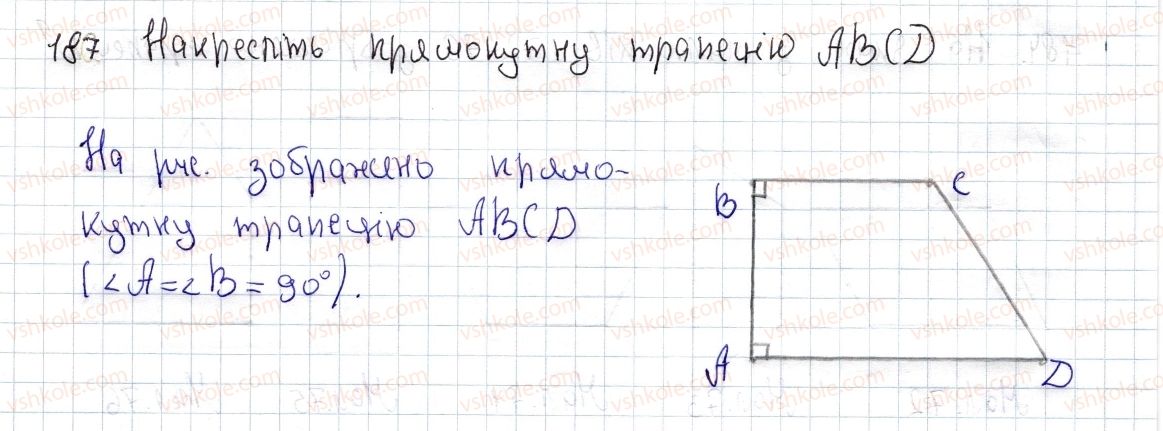 187 Накресліть прямокутну трапецію ABCD
На рис. зображено прямо-
кутну трапецію ABCD
(∠A=∠B=90°).
B
C
A
D
vshkole.com